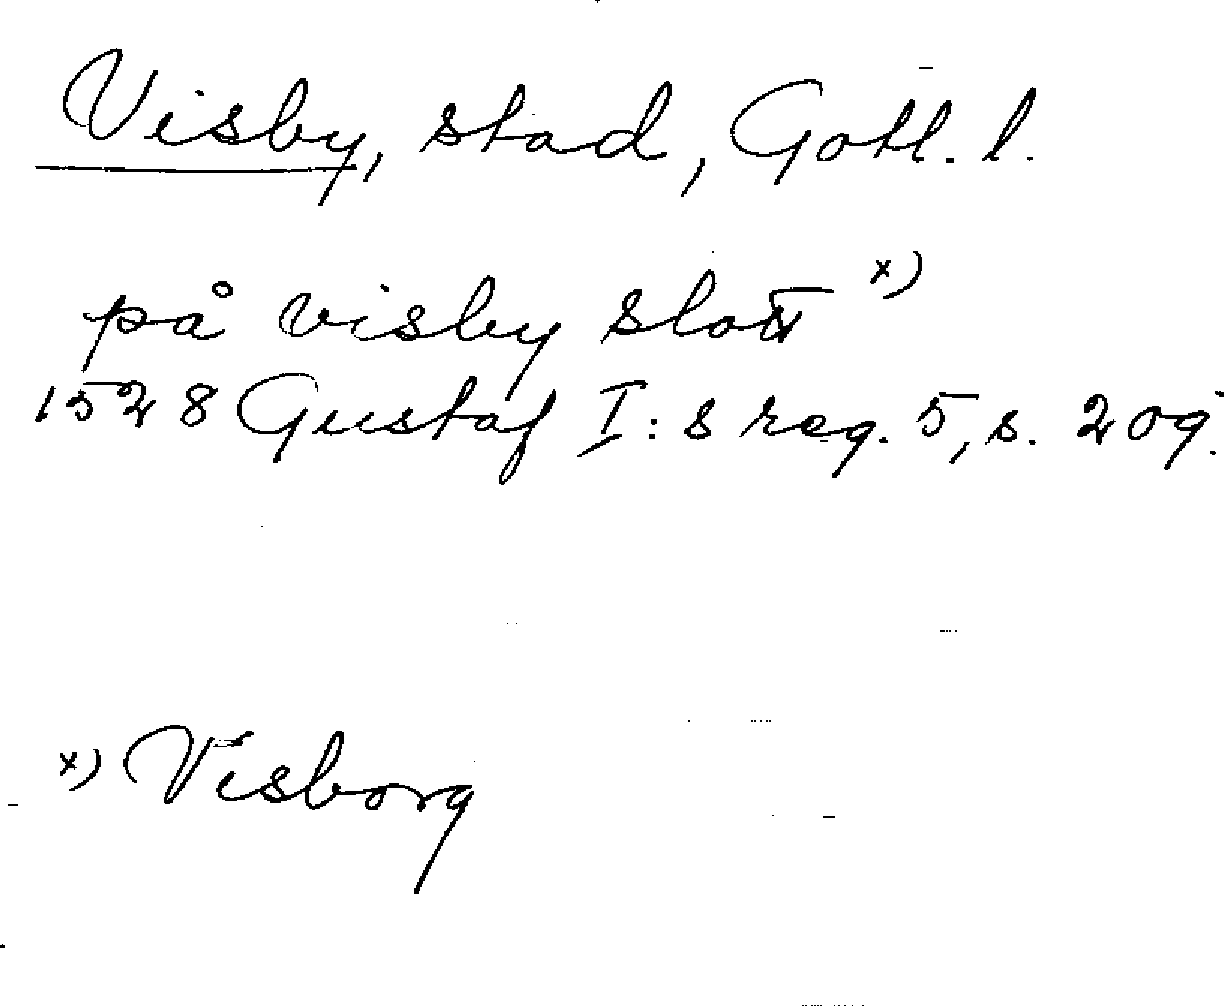 Visby, stad, Gotl. l.
på visby slott x)
1528 Gustaf I:s reg. 5, s. 209.
x) Visborg